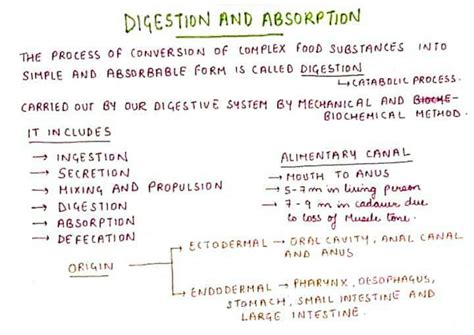 DIGESTION AND ABSORPTION
THE PROCESS OF CONVERSION OF COMPLEX FOOD SUBSTANCES INTO
SIMPLE AND ABSORBABLE FORM IS CALLED DIGESTION
↳ CATABOLIC PROCESS.
CARRIED OUT BY OUR DIGESTIVE SYSTEM BY MECHANICAL AND
BIOCHEMICAL METHOD.
IT INCLUDES
→ INGESTION
→ SECRETION
→ MIXING AND PROPULSION
→ DIGESTION
→ ABSORPTION
→ DEFECATION
ALIMENTARY CANAL
→ MOUTH TO ANUS
→ 5-7m in living person
→ 7-9m in cadaver due
to loss of Muscle tone.
ORIGIN
→ ECTODERMAL → ORAL CAVITY, ANAL CANAL
AND ANUS
→ ENDODERMAL → PHARYNX, OESOPHAGUS,
STOMACH, SMALL INTESTINE AND
LARGE INTESTINE.